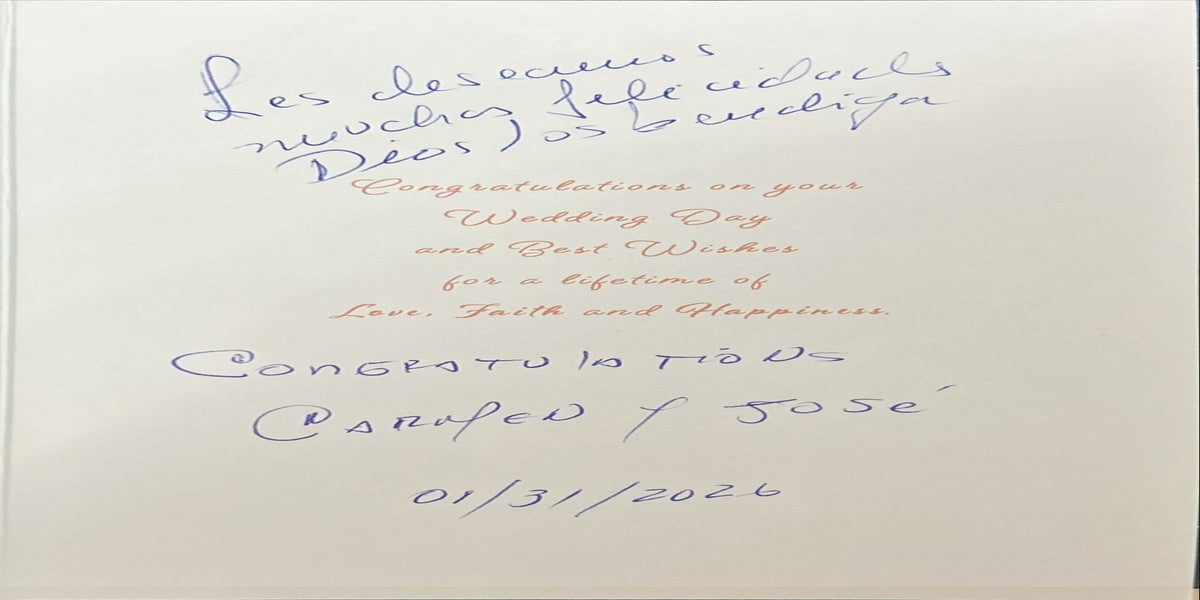 Les deseamos
muchas felicidades
Dios los bendiga
Congratulations on your
Wedding Day
and Best Wishes
for a lifetime of
Love, Faith and Happiness.
CONGRATULATIONS
CARMEN Y JOSÉ
01/31/2026